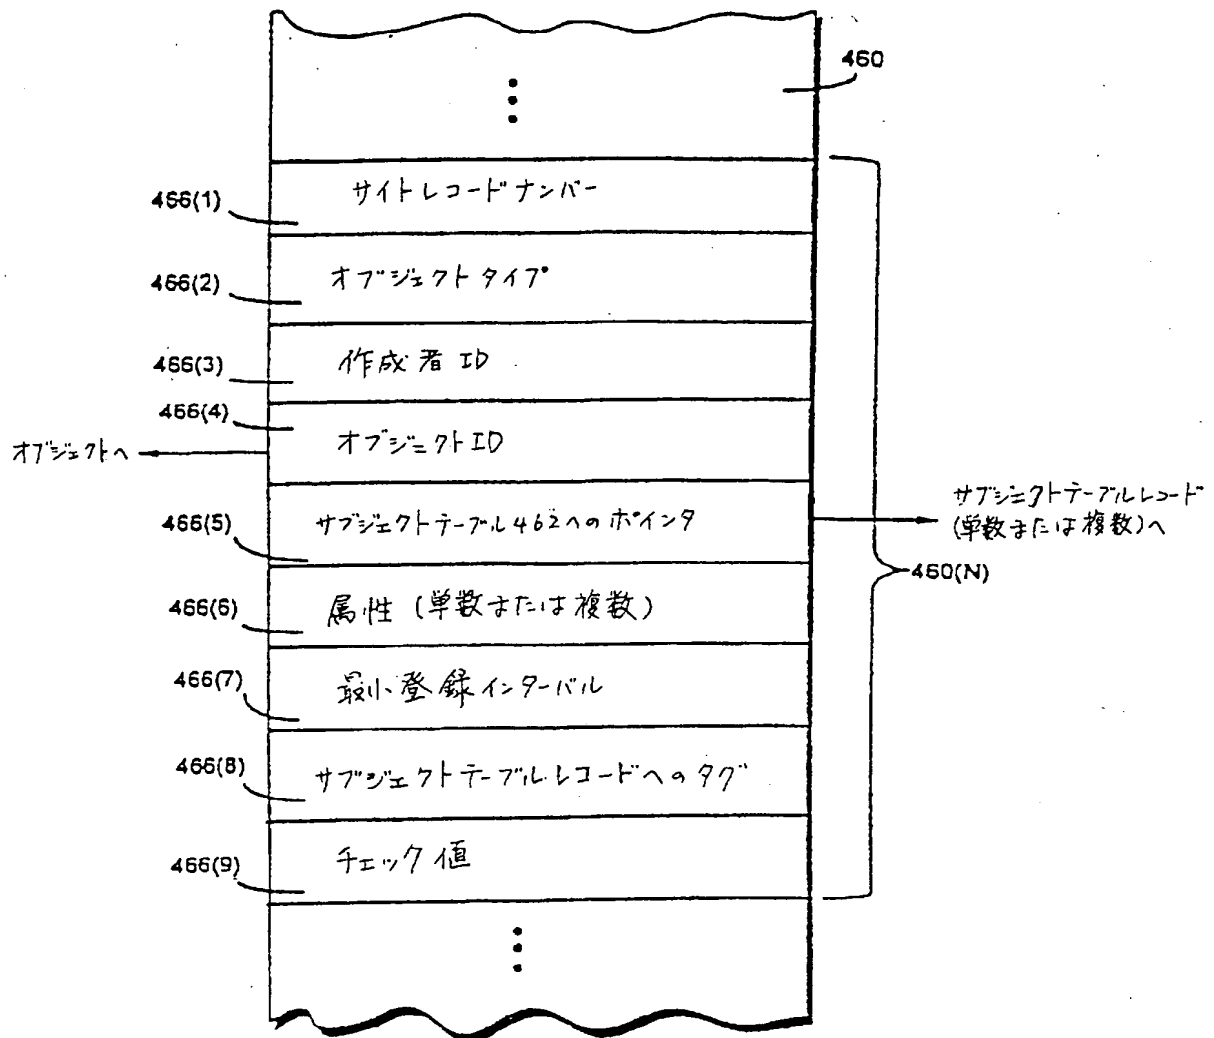 460
466(1)
サイトレコードナンバー
466(2)
オブジェクトタイプ
466(3)
作成者ID
466(4)
オブジェクトID
オブジェクトへ
466(5)
サブジェクトテーブル462へのポインタ
サブジェクトテーブルレコード
(単数または複数)へ
460(N)
466(6)
属性(単数または複数)
466(7)
最小登録インターバル
466(8)
サブジェクトテーブルレコードへのタグ
466(9)
チェック値